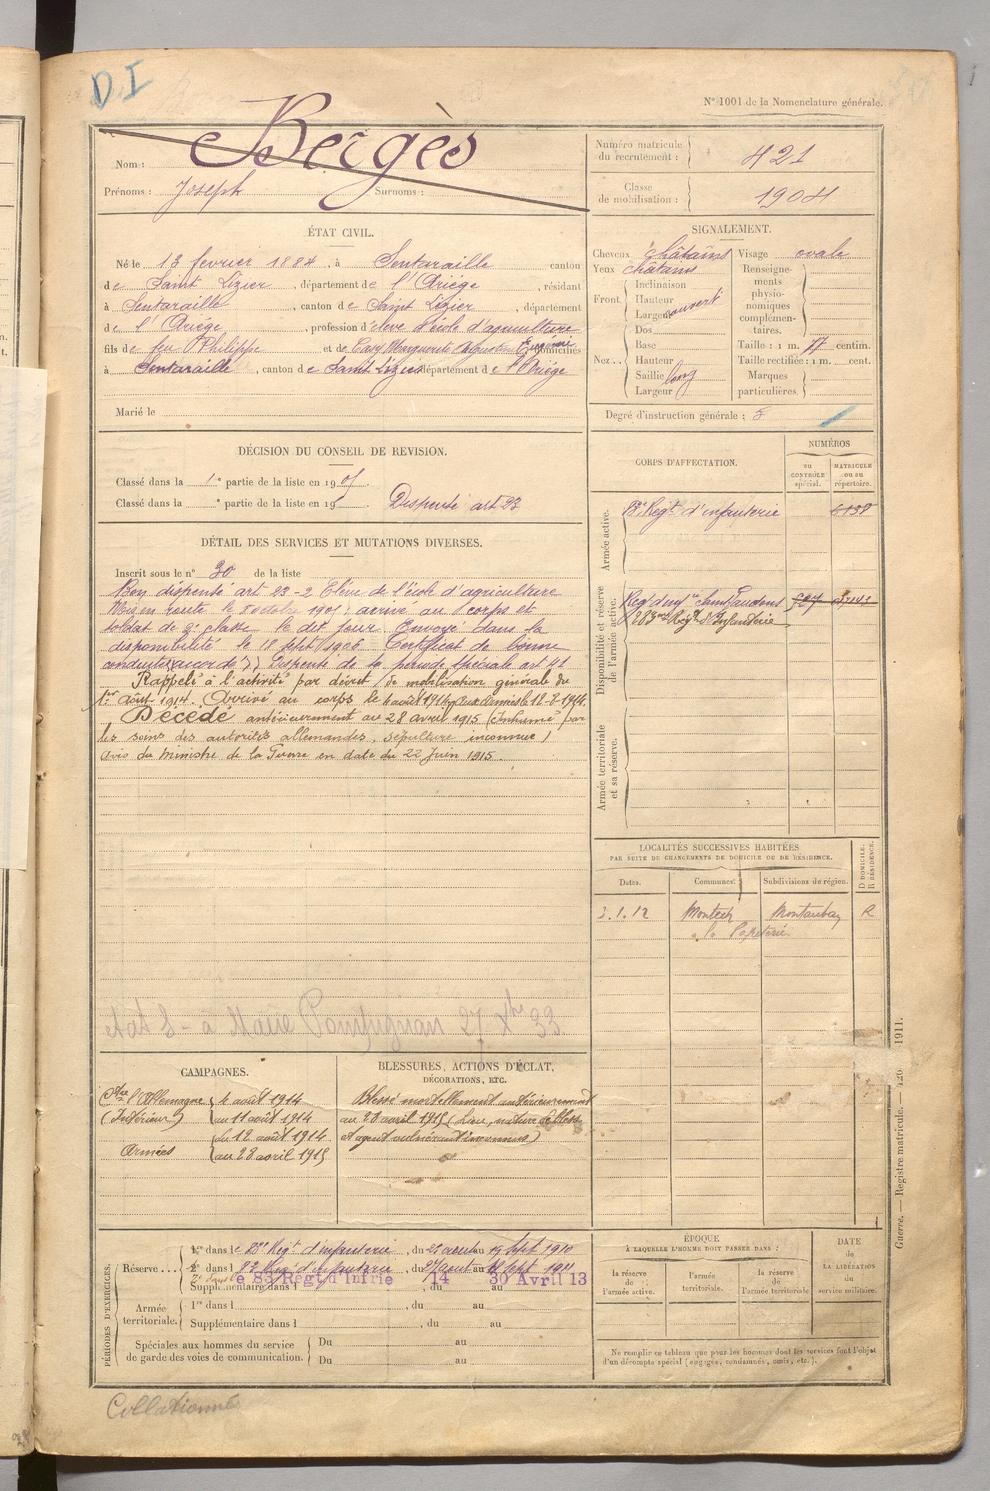 D I
N° 1001 de la Nomenclature générale.
Nom : Bergès
Prénoms : Joseph Surnoms :
Numéro matricule du recrutement : 421
Classe de mobilisation : 1904
ÉTAT CIVIL.
Né le 13 février 1884, à Sentaraille canton
de Saint Lizier, département de l'Ariège, résidant
à Sentaraille, canton de Saint Lizier, département
de l'Ariège, profession d'élève d'école d'agriculture
fils de feu Philippe et de Marguerite domiciliés
à Sentaraille, canton de Saint Lizier département de l'Ariège
Marié le
SIGNALEMENT.
Cheveux châtains Visage ovale
Yeux châtains
Front Inclinaison Hauteur Largeur ouvert
Nez Dos Base Hauteur Saillie long Largeur
Renseignements physionomiques complémentaires.
Taille : 1 m. 77 centim.
Taille rectifiée : 1 m. cent.
Marques particulières.
Degré d'instruction générale :
DÉCISION DU CONSEIL DE REVISION.
Classé dans la 1e partie de la liste en 190
Classé dans la e partie de la liste en 19 Dispensé art 23
CORPS D'AFFECTATION.
NUMÉROS
au CONTRÔLE spécial.
MATRICULE ou au répertoire.
Armée active.
Régt d'infanterie
Disponibilité et réserve de l'armée active.
Régt d'inf Saint Gaudens
283me Régt d'Infanterie
Armée territoriale et sa réserve.
DÉTAIL DES SERVICES ET MUTATIONS DIVERSES.
Inscrit sous le n° 30 de la liste
Bon dispensé art 23-2 Elève de l'école d'agriculture
Mis en route le 8 octobre 190 arrivé au corps et
soldat de 2e classe le dit jour. Envoyé dans la
disponibilité le 18 sept 1906 Certificat de bonne
conduite accordé Dispensé de la période spéciale art 41
Rappelé à l'activité par décret de mobilisation générale du
1er août 1914. Arrivé au corps le 4 août 1914 Aux armées le 12-8-1914.
Décédé antérieurement au 28 avril 1915 (Inhumé par
les soins des autorités allemandes, sépulture inconnue)
Avis du Ministre de la Guerre en date du 22 Juin 1915.
à Mairie Pompignan 27 Xbre 33
LOCALITÉS SUCCESSIVES HABITÉES
PAR SUITE DE CHANGEMENTS DE DOMICILE OU DE RÉSIDENCE.
Dates. Communes. Subdivisions de région. D DOMICILE. R RÉSIDENCE.
3.1.12 Montech Montauban R
la Papeterie
CAMPAGNES.
Ctre l'Allemagne 4 août 1914
(Intérieur) au 11 août 1914
du 12 août 1914
Armées au 28 avril 1915
BLESSURES, ACTIONS D'ÉCLAT, DÉCORATIONS, ETC.
Blessé mortellement antérieurement
au 28 avril 1915 (Lieu, nature de bless
et agent inconnus)
PÉRIODES D'EXERCICES.
Réserve ... 1re dans le Régt d'infanterie, du 2 août au Sept 1910
2e dans l 83 Régt d'Infanterie, du 27 août au Sept 1911
e 83 Régt d'Infrie 14 30 Avril 13
Supplémentaire dans l , du au
Armée territoriale. 1re dans l , du au
Supplémentaire dans l , du au
Spéciales aux hommes du service de garde des voies de communication. Du au
Du au
ÉPOQUE
À LAQUELLE L'HOMME DOIT PASSER DANS :
la réserve de l'armée active.
l'armée territoriale.
la réserve de l'armée territoriale
DATE de LA LIBÉRATION du service militaire.
Ne remplir ce tableau que pour les hommes dont les services font l'objet
d'un décompte spécial (engagés, condamnés, omis, etc.).
Guerre. — Registre matricule. 1911.
Collationné